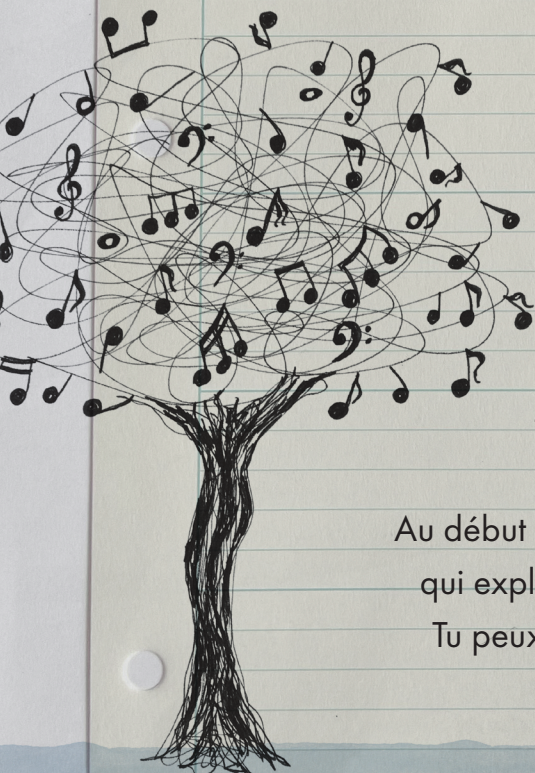 Au début
qui expl
Tu peux